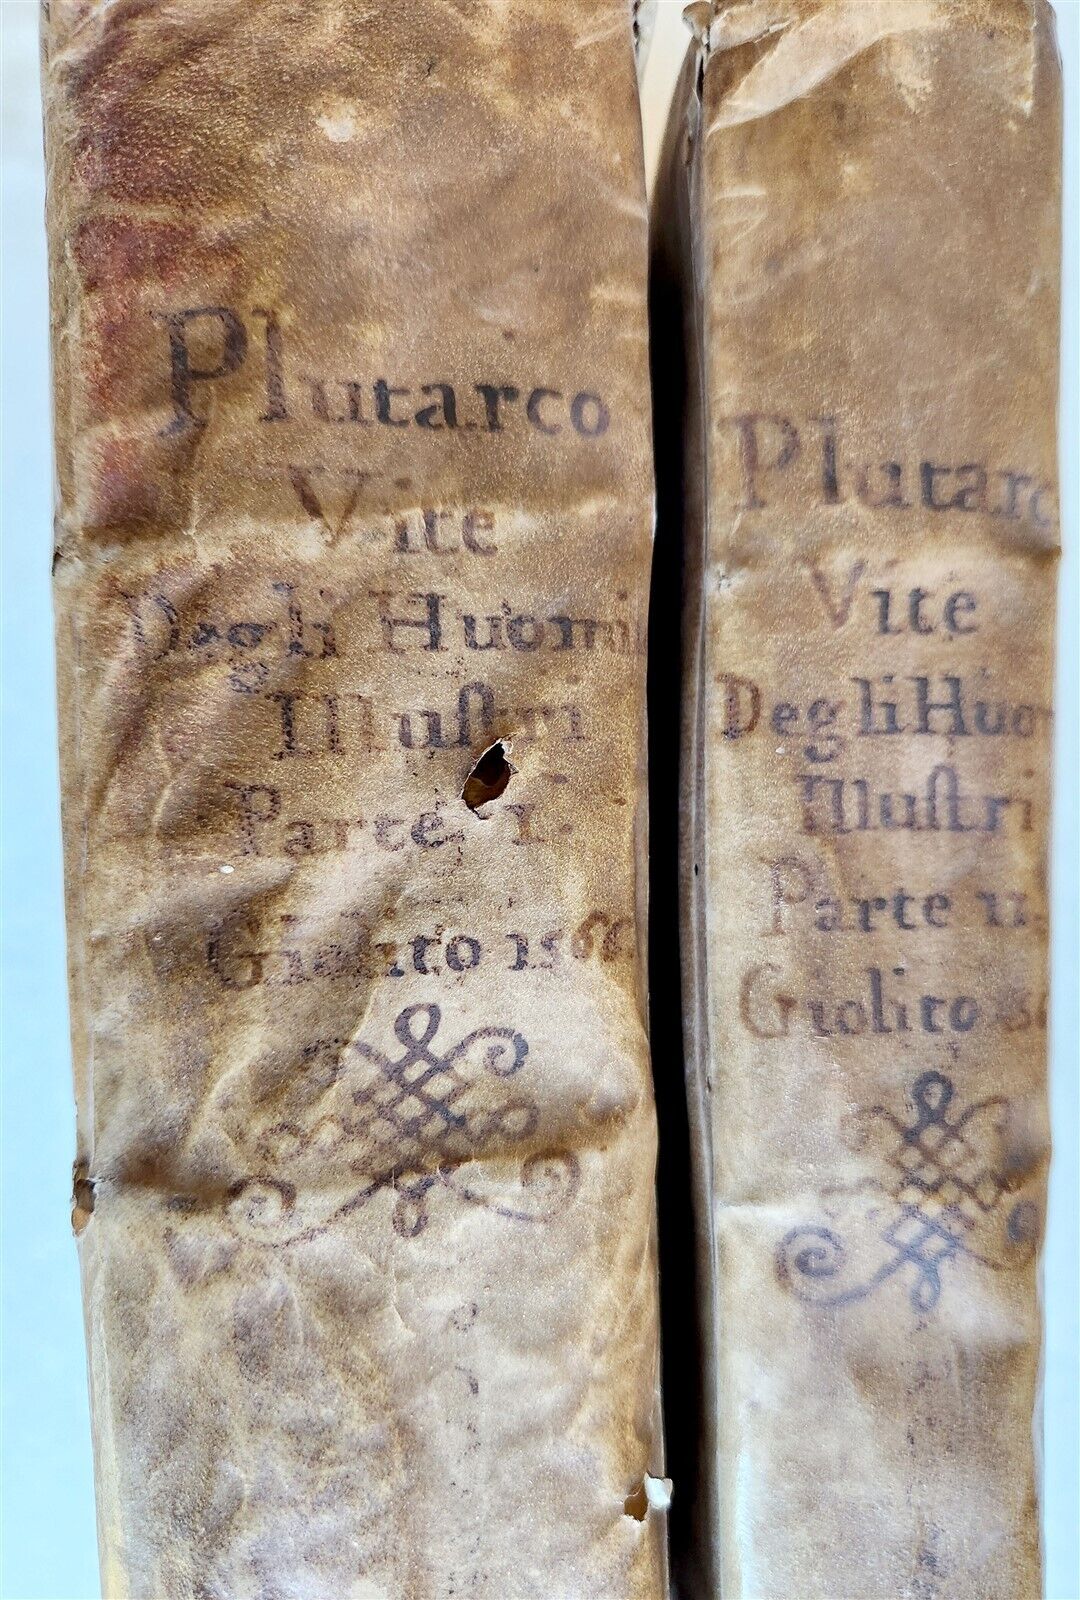 Plutarco
Vite
Degli Huomi
Illuſtri
Parte, 1.
Giolito
Plutarc
Vite
Degli Huo
Illuſtri
Parte 11.
Giolito